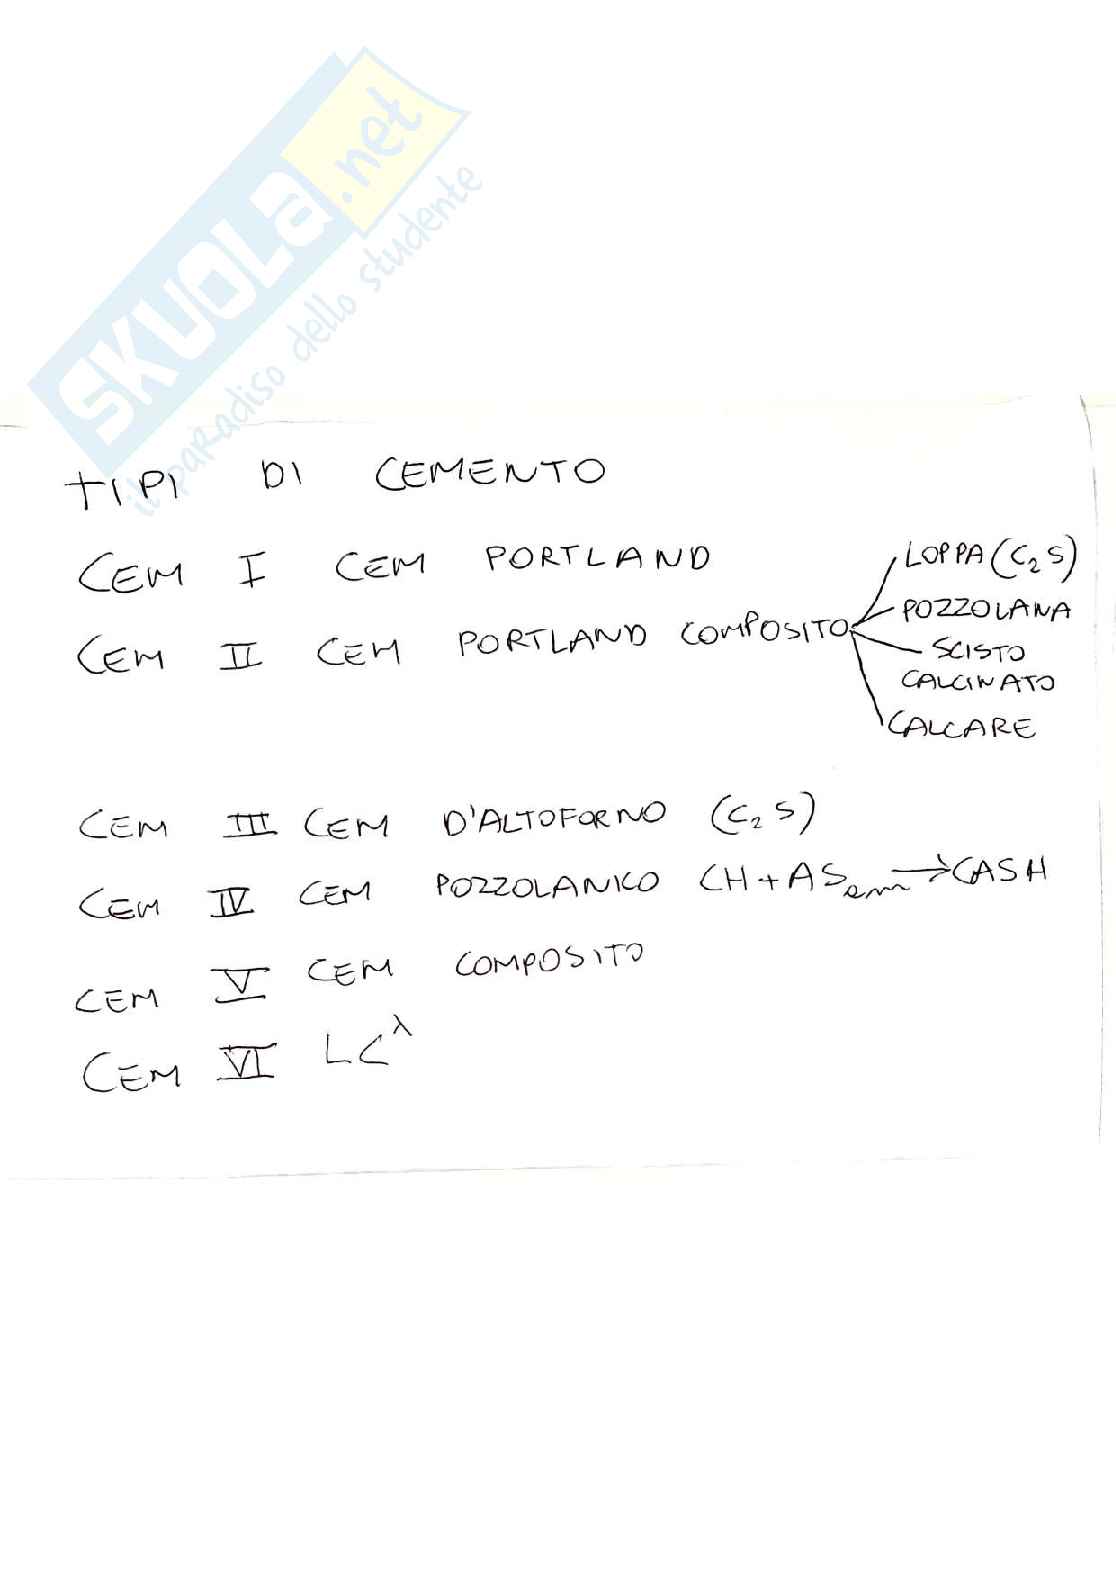 SKUOLA.net
il paradiso dello studente
TIPI DI CEMENTO
CEM I CEM PORTLAND
CEM II CEM PORTLAND COMPOSITO
LOPPA (C₂S)
POZZOLANA
SCISTO
CALCINATO
CALCARE
CEM III CEM D'ALTOFORNO (C₂S)
CEM IV CEM POZZOLANICO CH + AS → CASH
CEM V CEM COMPOSITO
CEM VI LC^λ